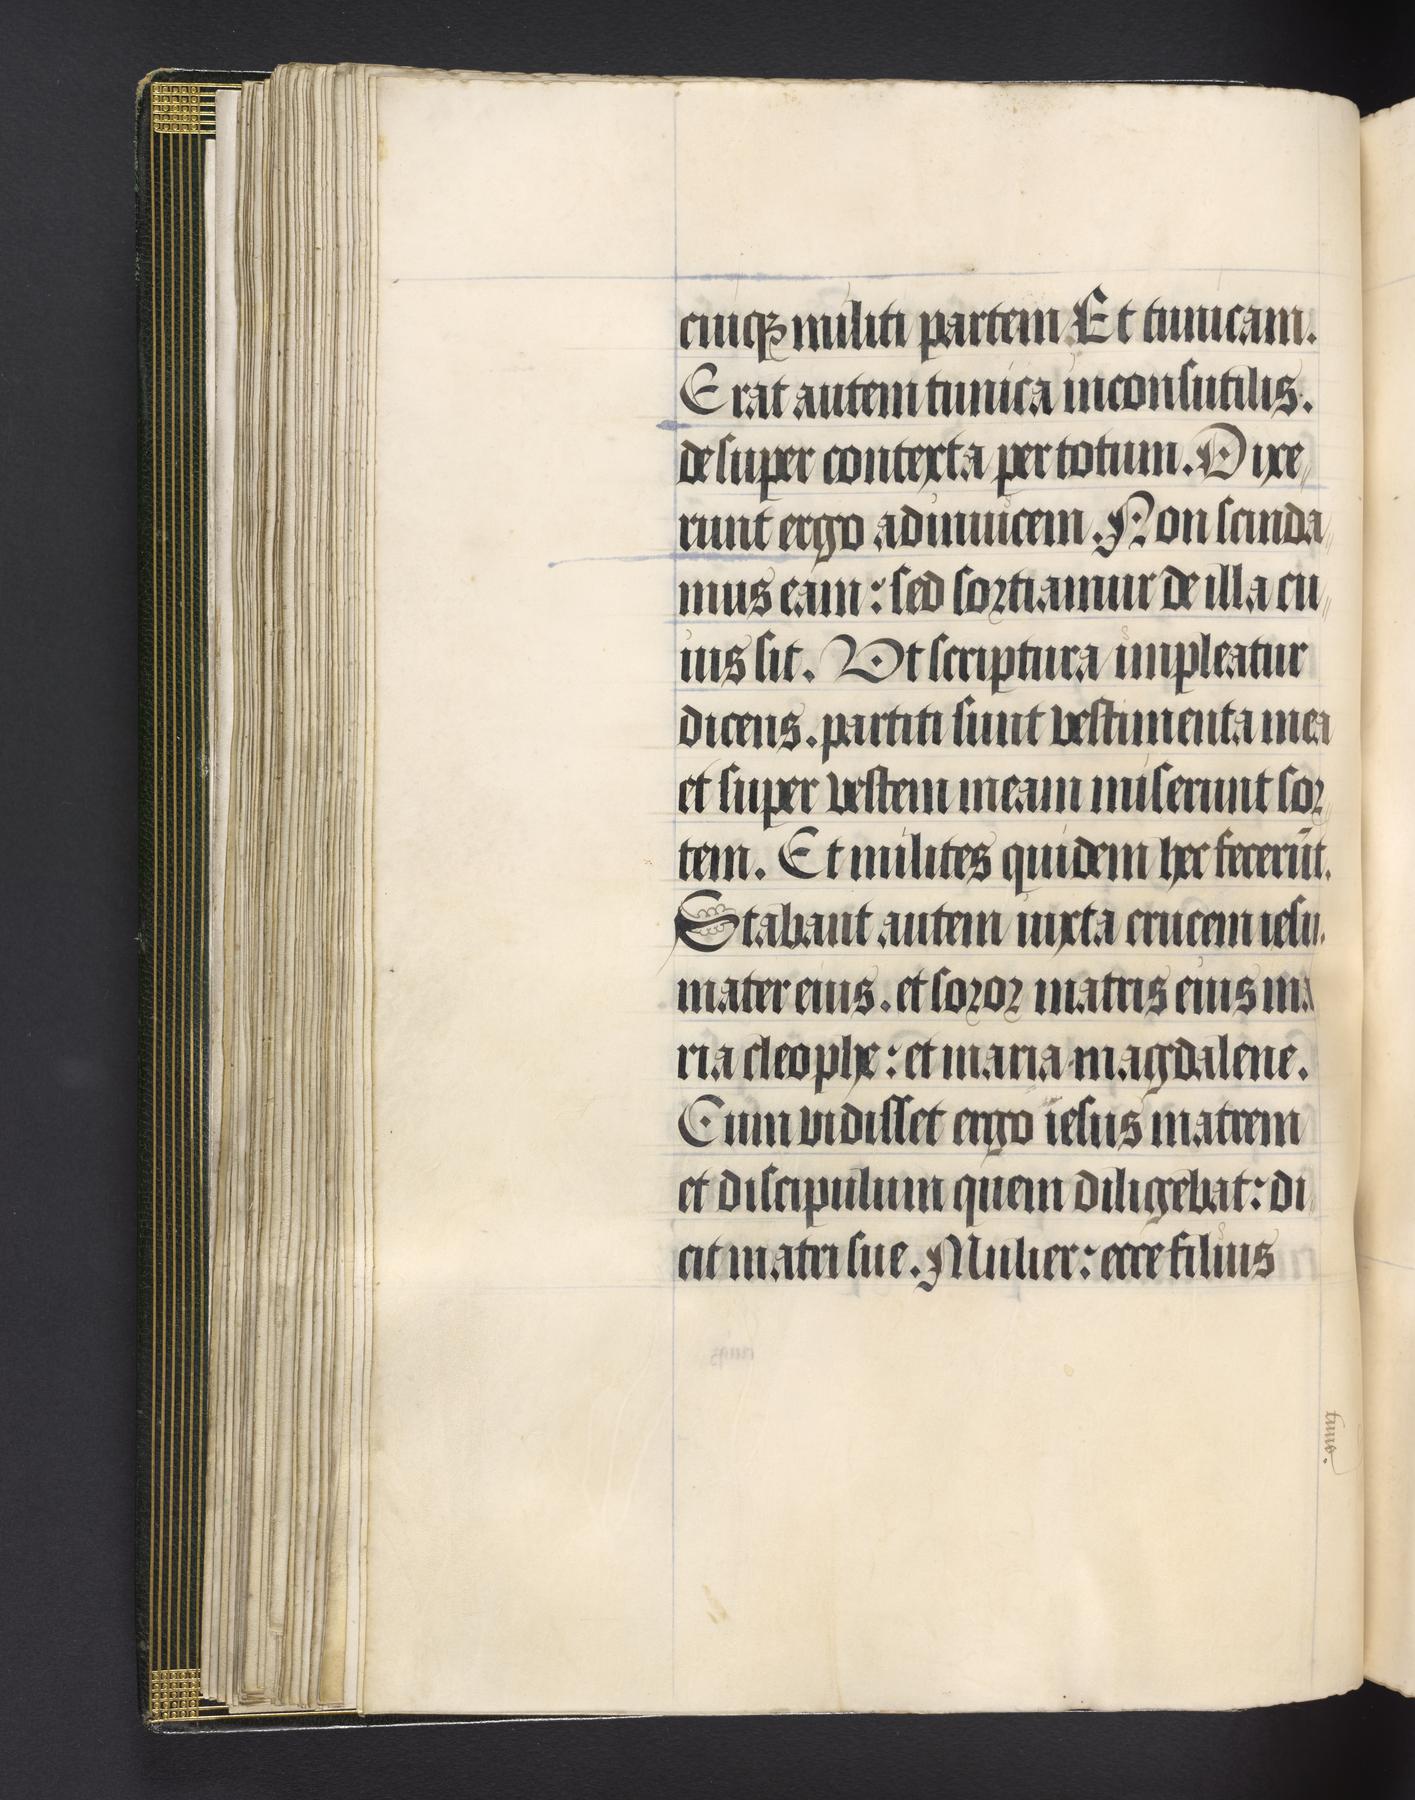 cuiqꝫ militi partem Et tunicam.
Erat autem tunica inconsutilis.
desuper contexta per totum. Dixe
runt ergo adinuicem. Non scinda
mus eam: sed sortiamur de illa cu
ius sit. Vt scriptura impleatur
dicens. partiti sunt vestimenta mea
et super vestem meam miserunt sor
tem. Et milites quidem hec fecerūt.
Stabant autem iuxta crucem iesu.
mater eius. et soror matris eius ma
ria cleophe: et maria magdalene.
Cum vidisset ergo iesus matrem
et discipulum quem diligebat: di
cit matri sue. Mulier: ecce filius
tuus.